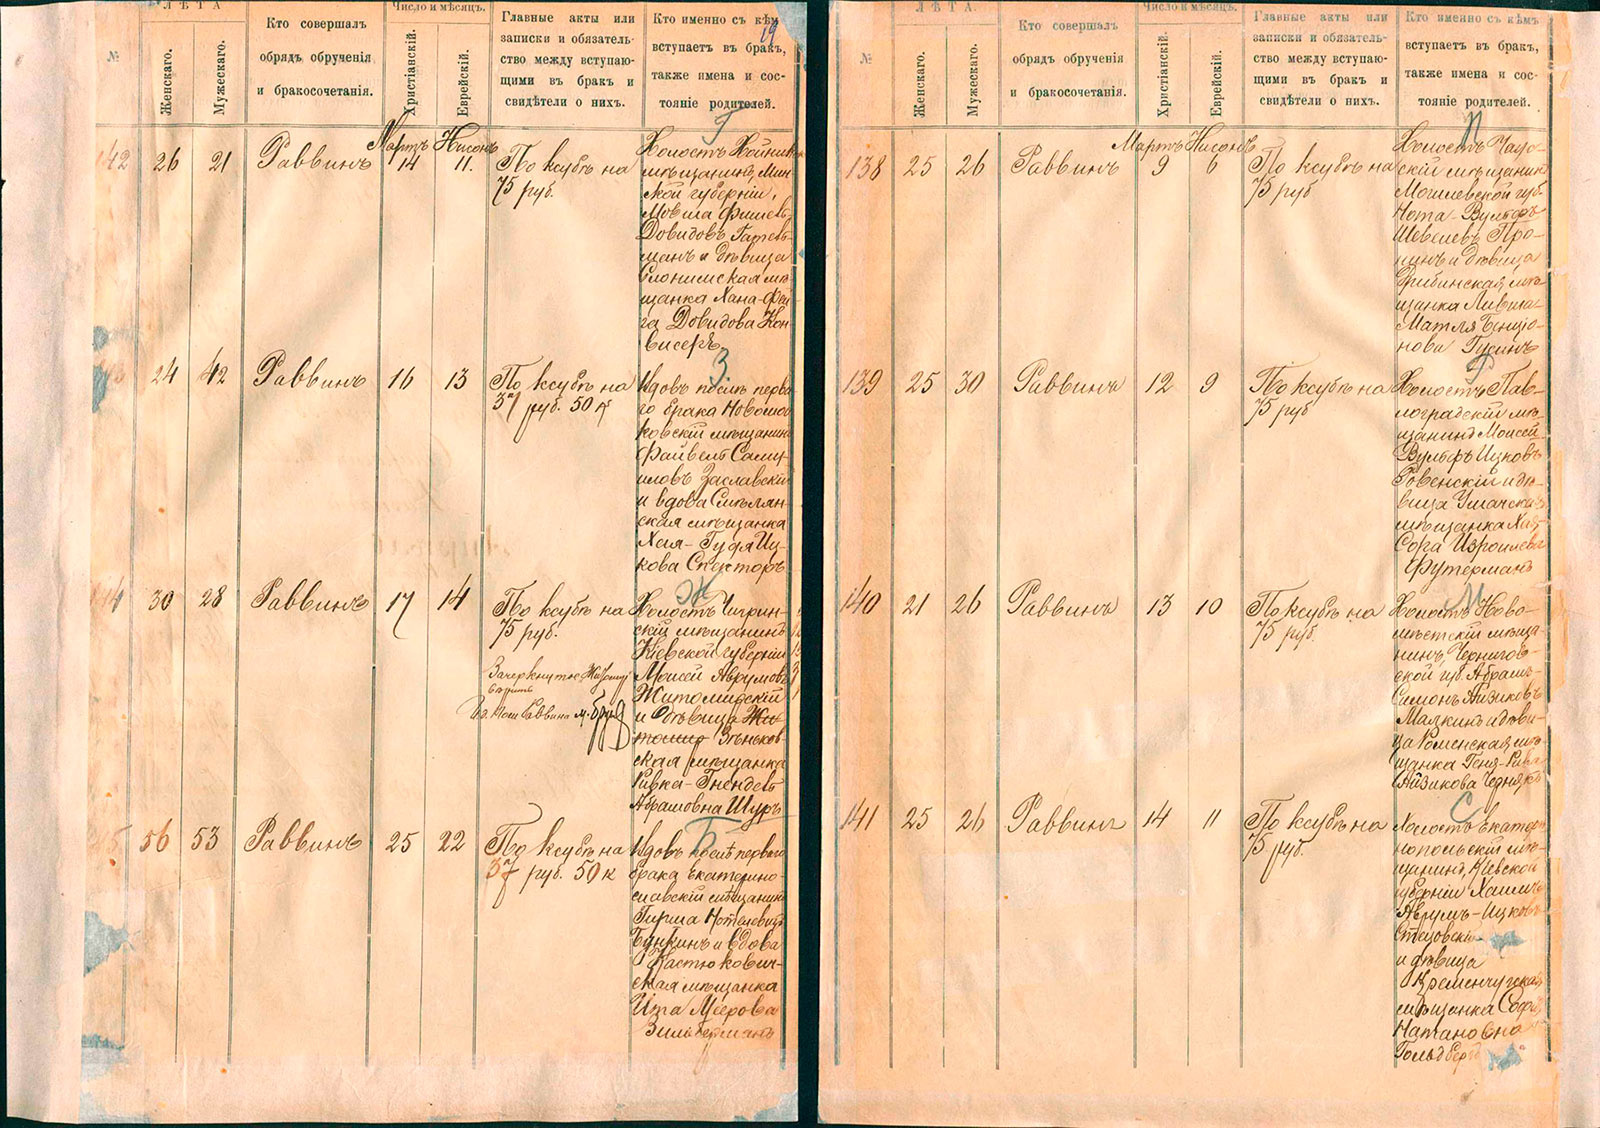 19
№
ЛѢТА
Женскаго.
Мужескаго.
Кто совершалъ
обрядъ обрученія
и бракосочетанія.
Число и мѣсяцъ.
Христіанскій.
Еврейскій.
Главные акты или
записки и обязатель-
ство между вступаю-
щими въ бракъ и
свидѣтели о нихъ.
Кто именно съ кѣмъ
вступаетъ въ бракъ,
также имена и сос-
тояніе родителей.
Мартъ Нисонъ
142 26 21 Раввинъ 14 11. По ксубѣ на
75 руб.
Г
Холостъ Хойникск
мѣщанинъ, Мин-
ской губерніи,
Мовша Фишель-
Довидовъ Гатель-
манъ и дѣвица
Слонимская мѣ-
щанка Хана-Фей-
га Довидова Кон-
висеръ
24 42 Раввинъ 16 13 По ксубѣ на
37 руб. 50 к
З.
Вдовъ послѣ перва-
го брака Новомос-
ковскій мѣщанинъ
Файвель Саму-
иловъ Заславскій
и вдова Смѣлян-
ская мѣщанка
Хая-Гудя Иц-
кова Спекторъ
30 28 Раввинъ 17 14 По ксубѣ на
75 руб.
Зачеркнутое
Раввина
Ж
Холостъ Чигрин-
скій мѣщанинъ
Кіевской губерніи
Моисей Аврумовъ
Житомирскій
и дѣвица Жи-
томир Зѣньков-
ская мѣщанка
Ривка-Гнендель
Абрамовна Шуръ
45 56 53 Раввинъ 25 22 По ксубѣ на
37 руб. 50 к
Б
Вдовъ послѣ перваго
брака Екатерино-
славскій мѣщанинъ
Гирша Нотелевичъ
Бункинъ и вдова
Костюкович-
ская мѣщанка
Ита Меерова
Зильберманъ
№
ЛѢТА.
Женскаго.
Мужескаго.
Кто совершалъ
обрядъ обрученія
и бракосочетанія.
Число и мѣсяцъ.
Христіанскій.
Еврейскій.
Главные акты или
записки и обязатель-
ство между вступаю-
щими въ бракъ и
свидѣтели о нихъ.
Кто именно съ кѣмъ
вступаетъ въ бракъ,
также имена и сос-
тояніе родителей.
Мартъ Нисонъ
138 25 26 Раввинъ 9 6 По ксубѣ на
75 руб
П
Холостъ Чаус-
скій мѣщанинъ
Могилевской губ.
Нота-Вульфъ
Шевелевъ Про-
нинъ и дѣвица
Дрибинская мѣ-
щанка
Матля Бенціо-
нова Гусинъ
139 25 30 Раввинъ 12 9 По ксубѣ на
75 руб
Р
Холостъ Пав-
лоградскій мѣ-
щанинъ Моисей
Вульфъ Ицковъ
Ровенскій и дѣ-
вица Ушачская
мѣщанка Хая
Сора Изроилева
Футерманъ
140 21 26 Раввинъ 13 10 По ксубѣ на
75 руб.
М
Холостъ Ново-
мѣстскій мѣща-
нинъ, Чернигов-
ской губ Абрамъ-
Симонъ Айзиковъ
Малкинъ и дѣви-
ца Роменская мѣ-
щанка Геня-Рива
Айзикова Чернякъ
141 25 26 Раввинъ 14 11 По ксубѣ на
75 руб.
С
Холостъ Екатери-
нопольскій мѣ-
щанинъ, Кіевской
губерніи Хаимъ
Аврумъ-Ицковъ
и дѣвица
Кременчугская
мѣщанка Софія
Натановна
Гольдберг